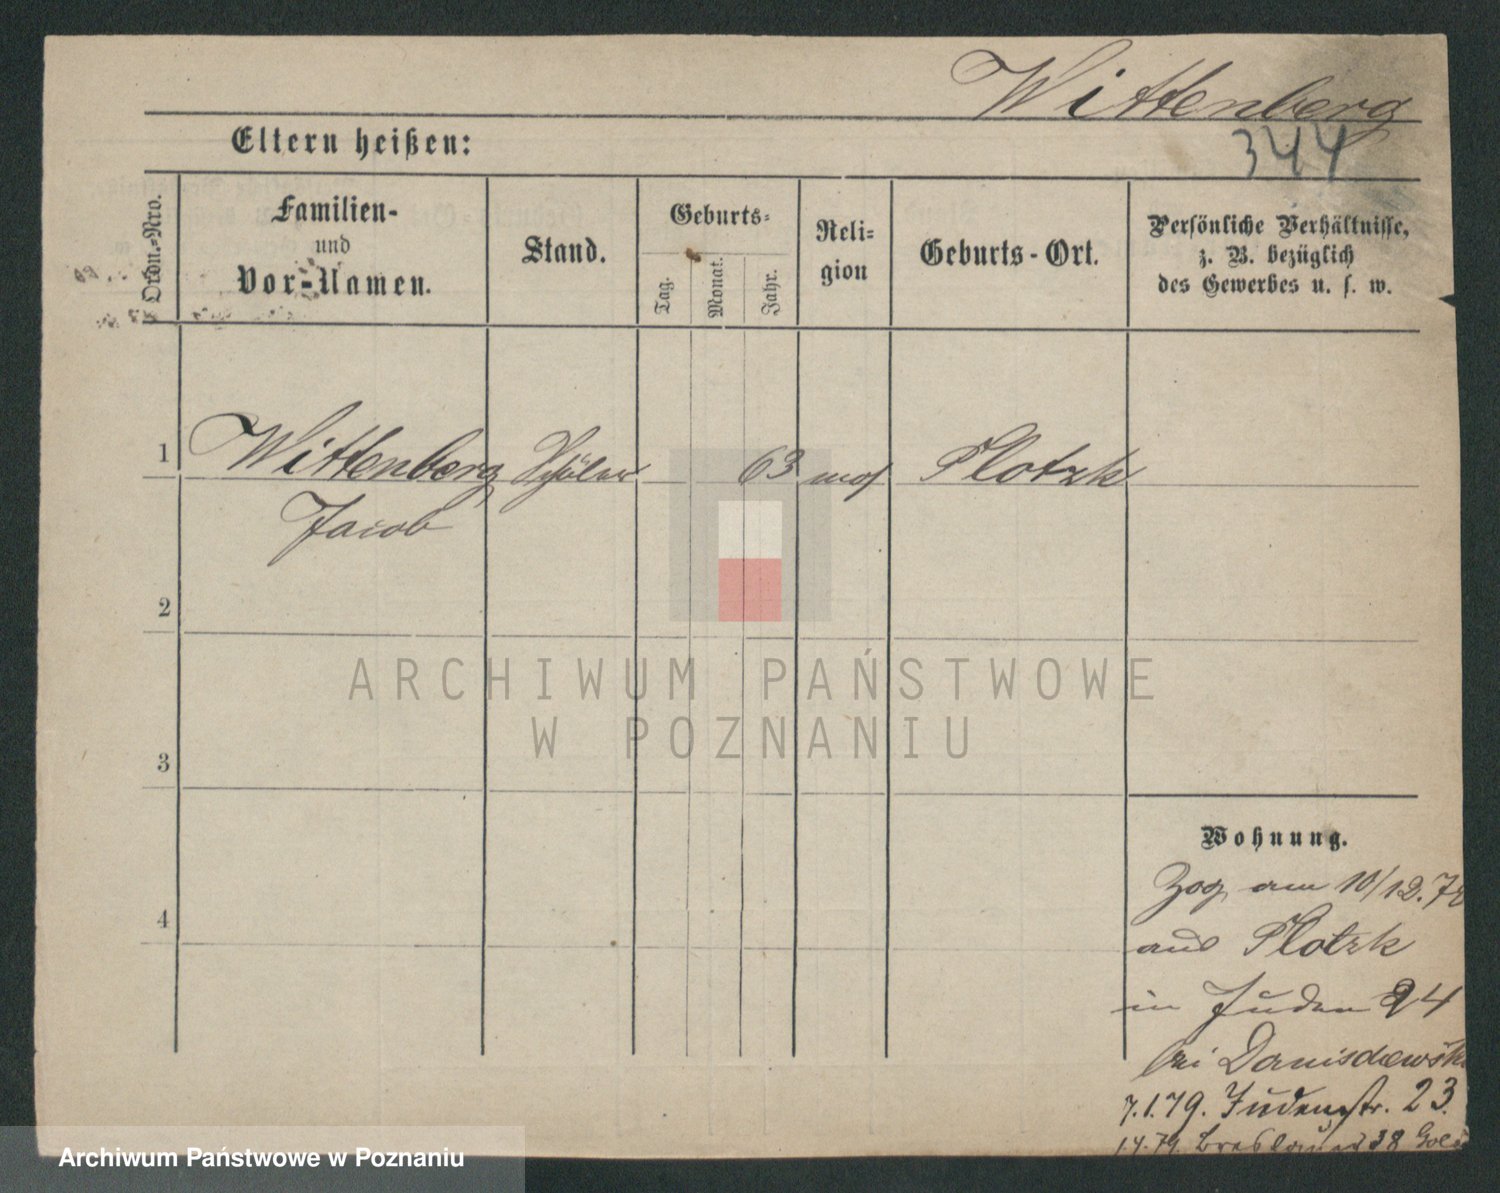 Wittenberg
344
Eltern heißen:
Ordn.-Nro.
Familien-
und
Vor-Namen.
Stand.
Geburts-
Tag.
Monat.
Jahr.
Reli-
gion
Geburts-Ort.
Persönliche Verhältnisse,
z. B. bezüglich
des Gewerbes u. s. w.
1
Wittenberg Schüler 63 mos Plotzk
Jacob
2
3
4
ARCHIWUM PAŃSTWOWE
W POZNANIU
Wohnung.
Zog am 10/12.78
aus Plotzk
in Juden 24
bei
7.1.79. Judenstr. 23.
1.4.79. 38
Archiwum Państwowe w Poznaniu